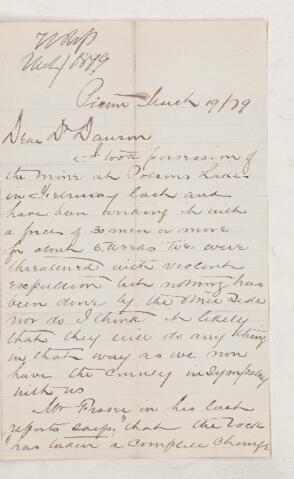 March 1879
Pictou March 19/79
Dear Dr Dawson
I took possession of
the mine at Polsons Lake
in February last and
have been working it with
a force of 30 men or more
for about 6 weeks We were
threatened with violent
expulsion but nothing has
been done by the other side
nor do I think it likely
that they will do any thing
in that way as we now
have the County in sympathy
with us
Mr Fraser in his last
reports says, "that the lock
"has taken a complete change